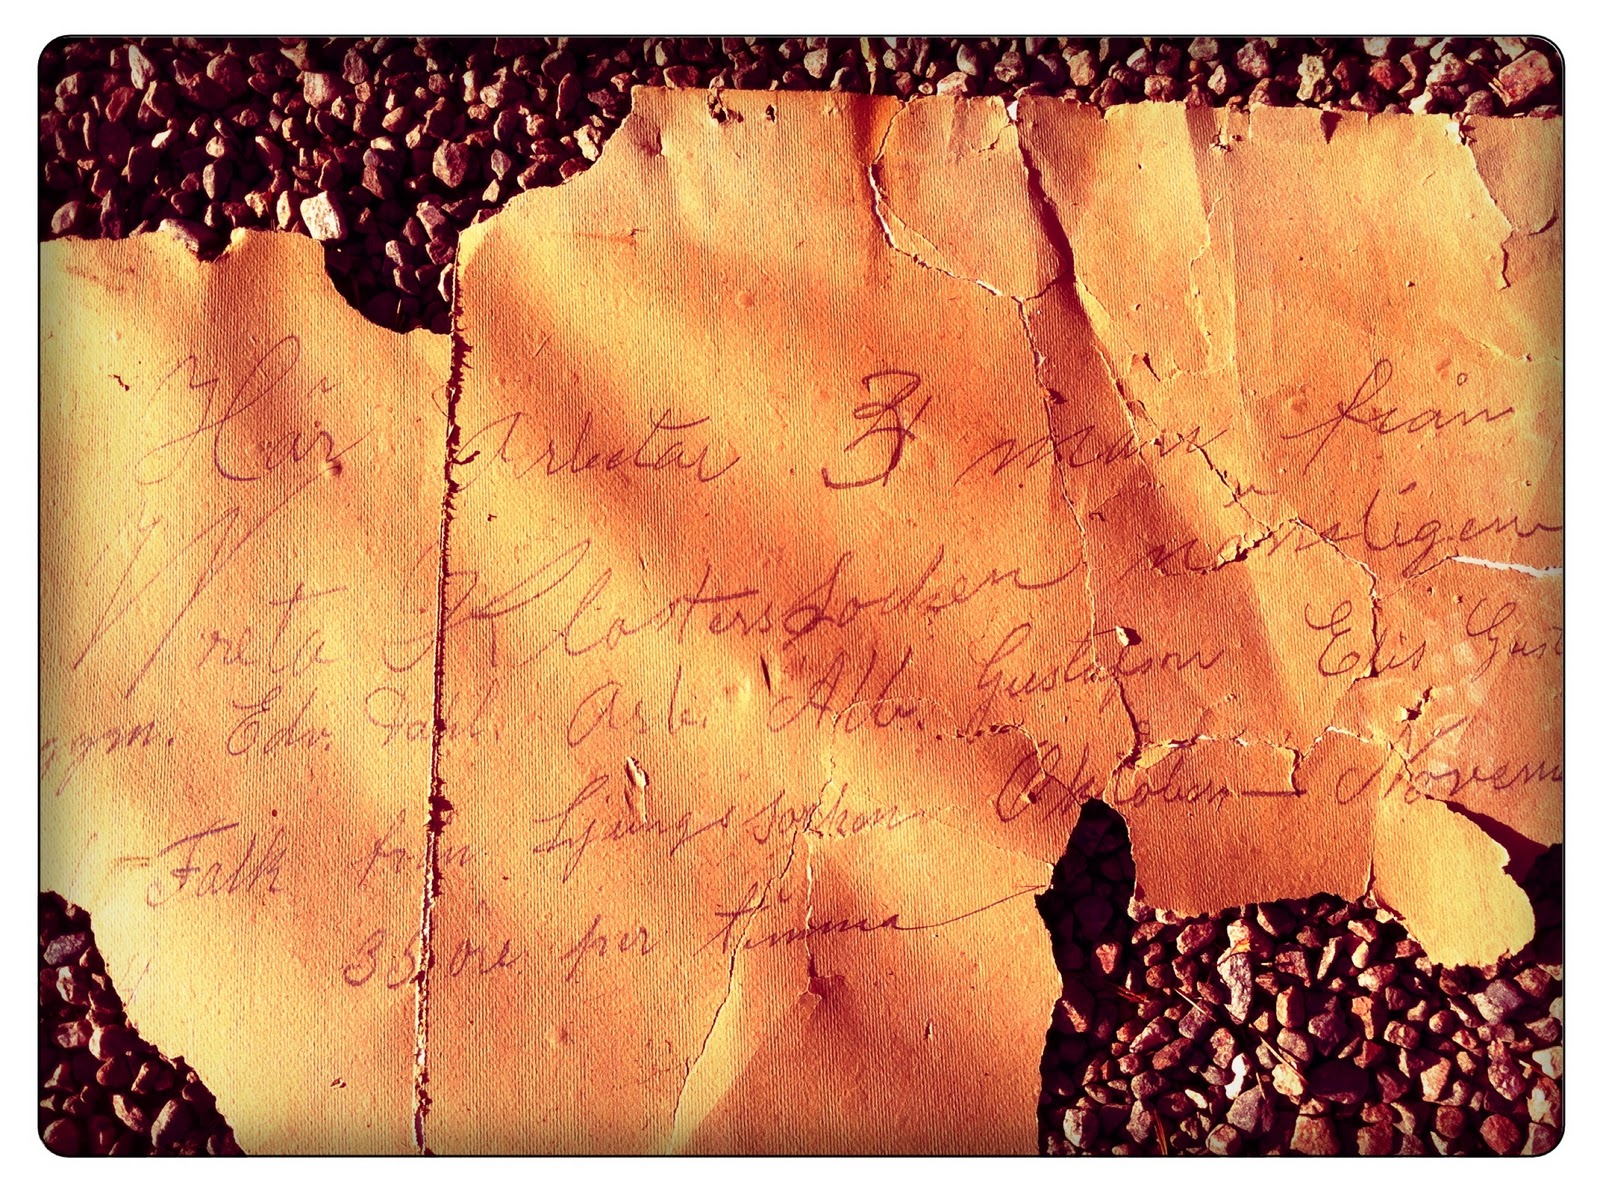 Här Arbetar 3 man från
Vreta Klosters Socken nämligen
Edv. Dahl. Ask. Alb. Gustafson Elis Gust
Falk från Ljungs Socken Oktober – Novem
35 öre per timma